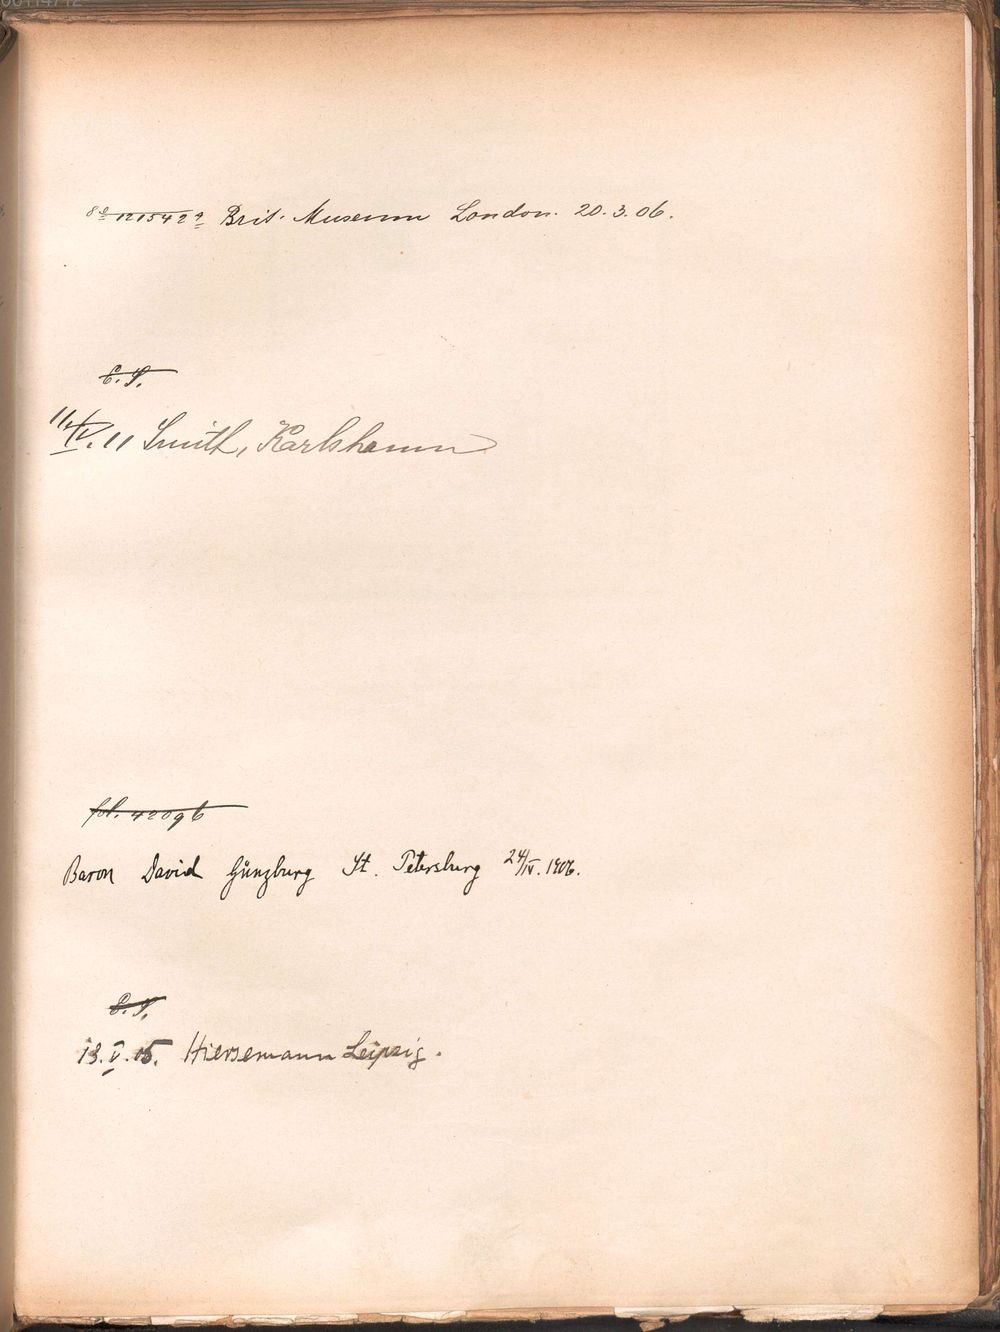 8º 1215422 Brit. Museum London. 20.3.06.
E. S.
11/IV.11 Smith, Karlshamn
fol. 42096
Baron David Günzburg St. Petersburg 24/IV.1906.
E. S.
13.V.05. Hiersemann Leipzig.